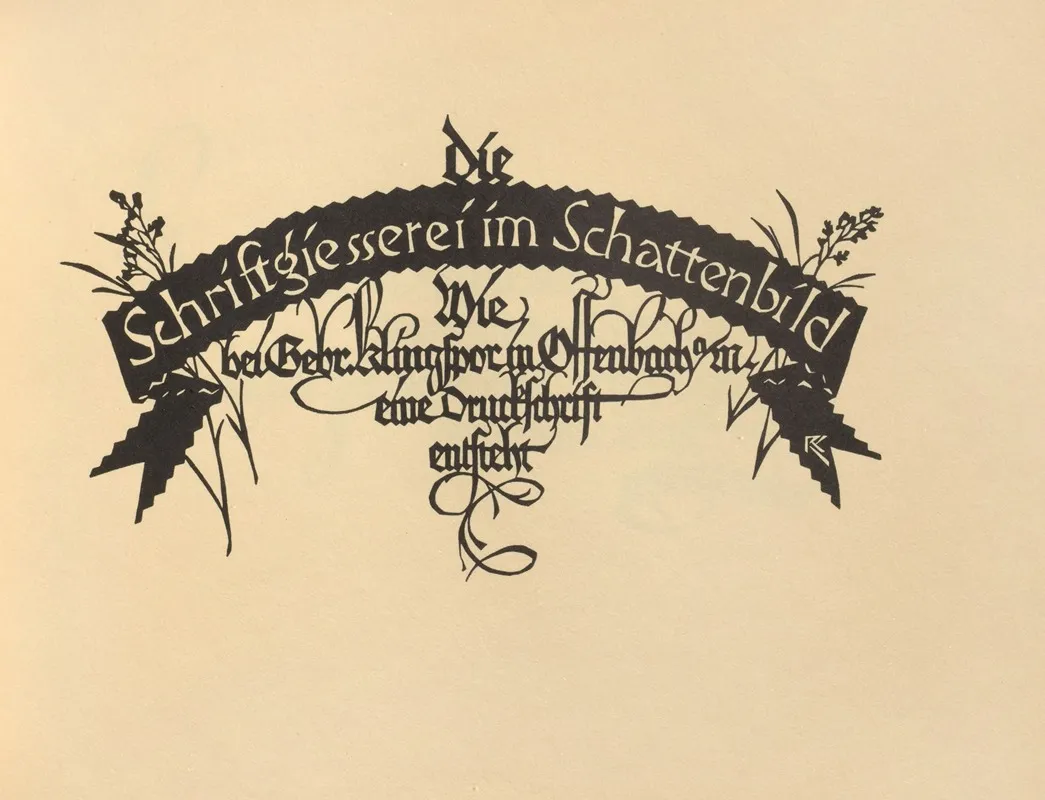 Die
Schriftgiesserei im Schattenbild
Wie
bei Gebr. Klingspor in Offenbach a/m.
eine Druckschrift
entsteht
RK